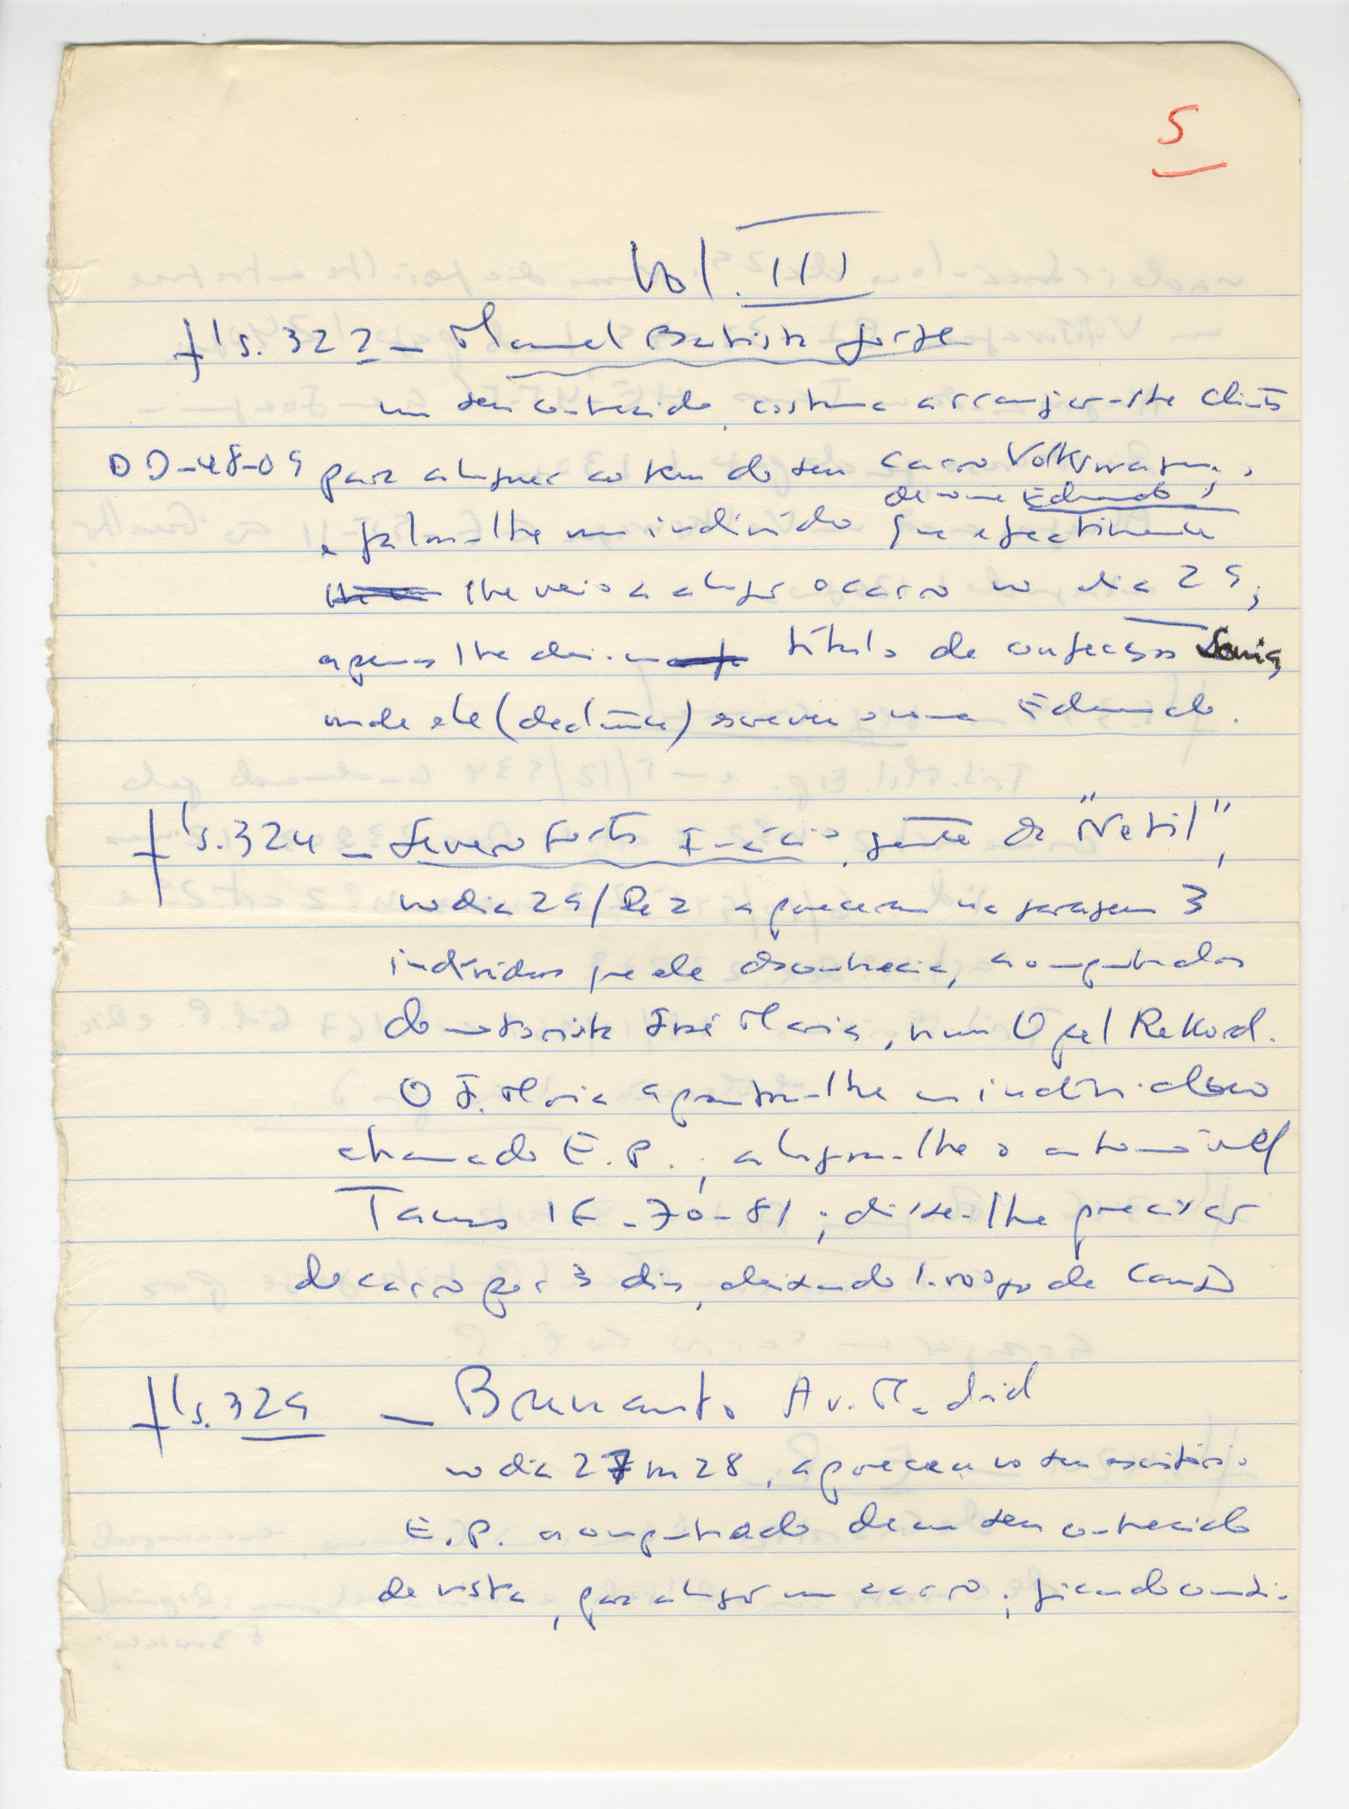 5
Vol. III
fls. 322 - Manuel Batista Jorge
um seu conhecido, costuma arranjar-lhe clientes
DD-48-09 para aluguer sem do seu carro Volkswagen,
de nome Edmundo,
e falou-lhe num indivíduo que efectivamente
lhe veio a alugar o carro no dia 29;
apenas lhe deu título de
onde ele (declarante) escreveu o nome Edmundo.
fls. 324 - Severo Inácio, gerente da "Netil",
no dia 29/Dez apareceram na garagem 3
indivíduos que ele desconhecia, acompanhados
do motorista José Maria, num Opel Rekord.
O J. Maria apontou-lhe um indivíduo
chamado E. P.; alugou-lhe o automóvel
Taunus IE-70-81; disse-lhe precisar
do carro por 3 dias, deixando 1.000$00 de caução
fls. 329 - Av. Madrid
no dia 27 ou 28, apareceu no seu escritório
E. P. acompanhado de um seu conhecido
de vista, para alugar um carro; ficando